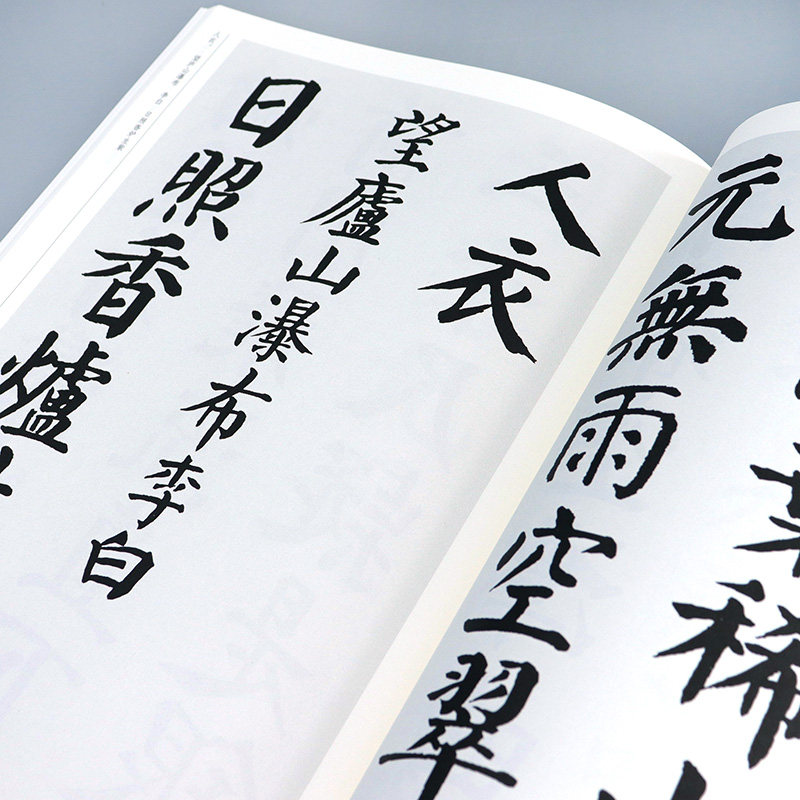 葉稀
元無雨空翠
人衣
望廬山瀑布李白
日照香爐